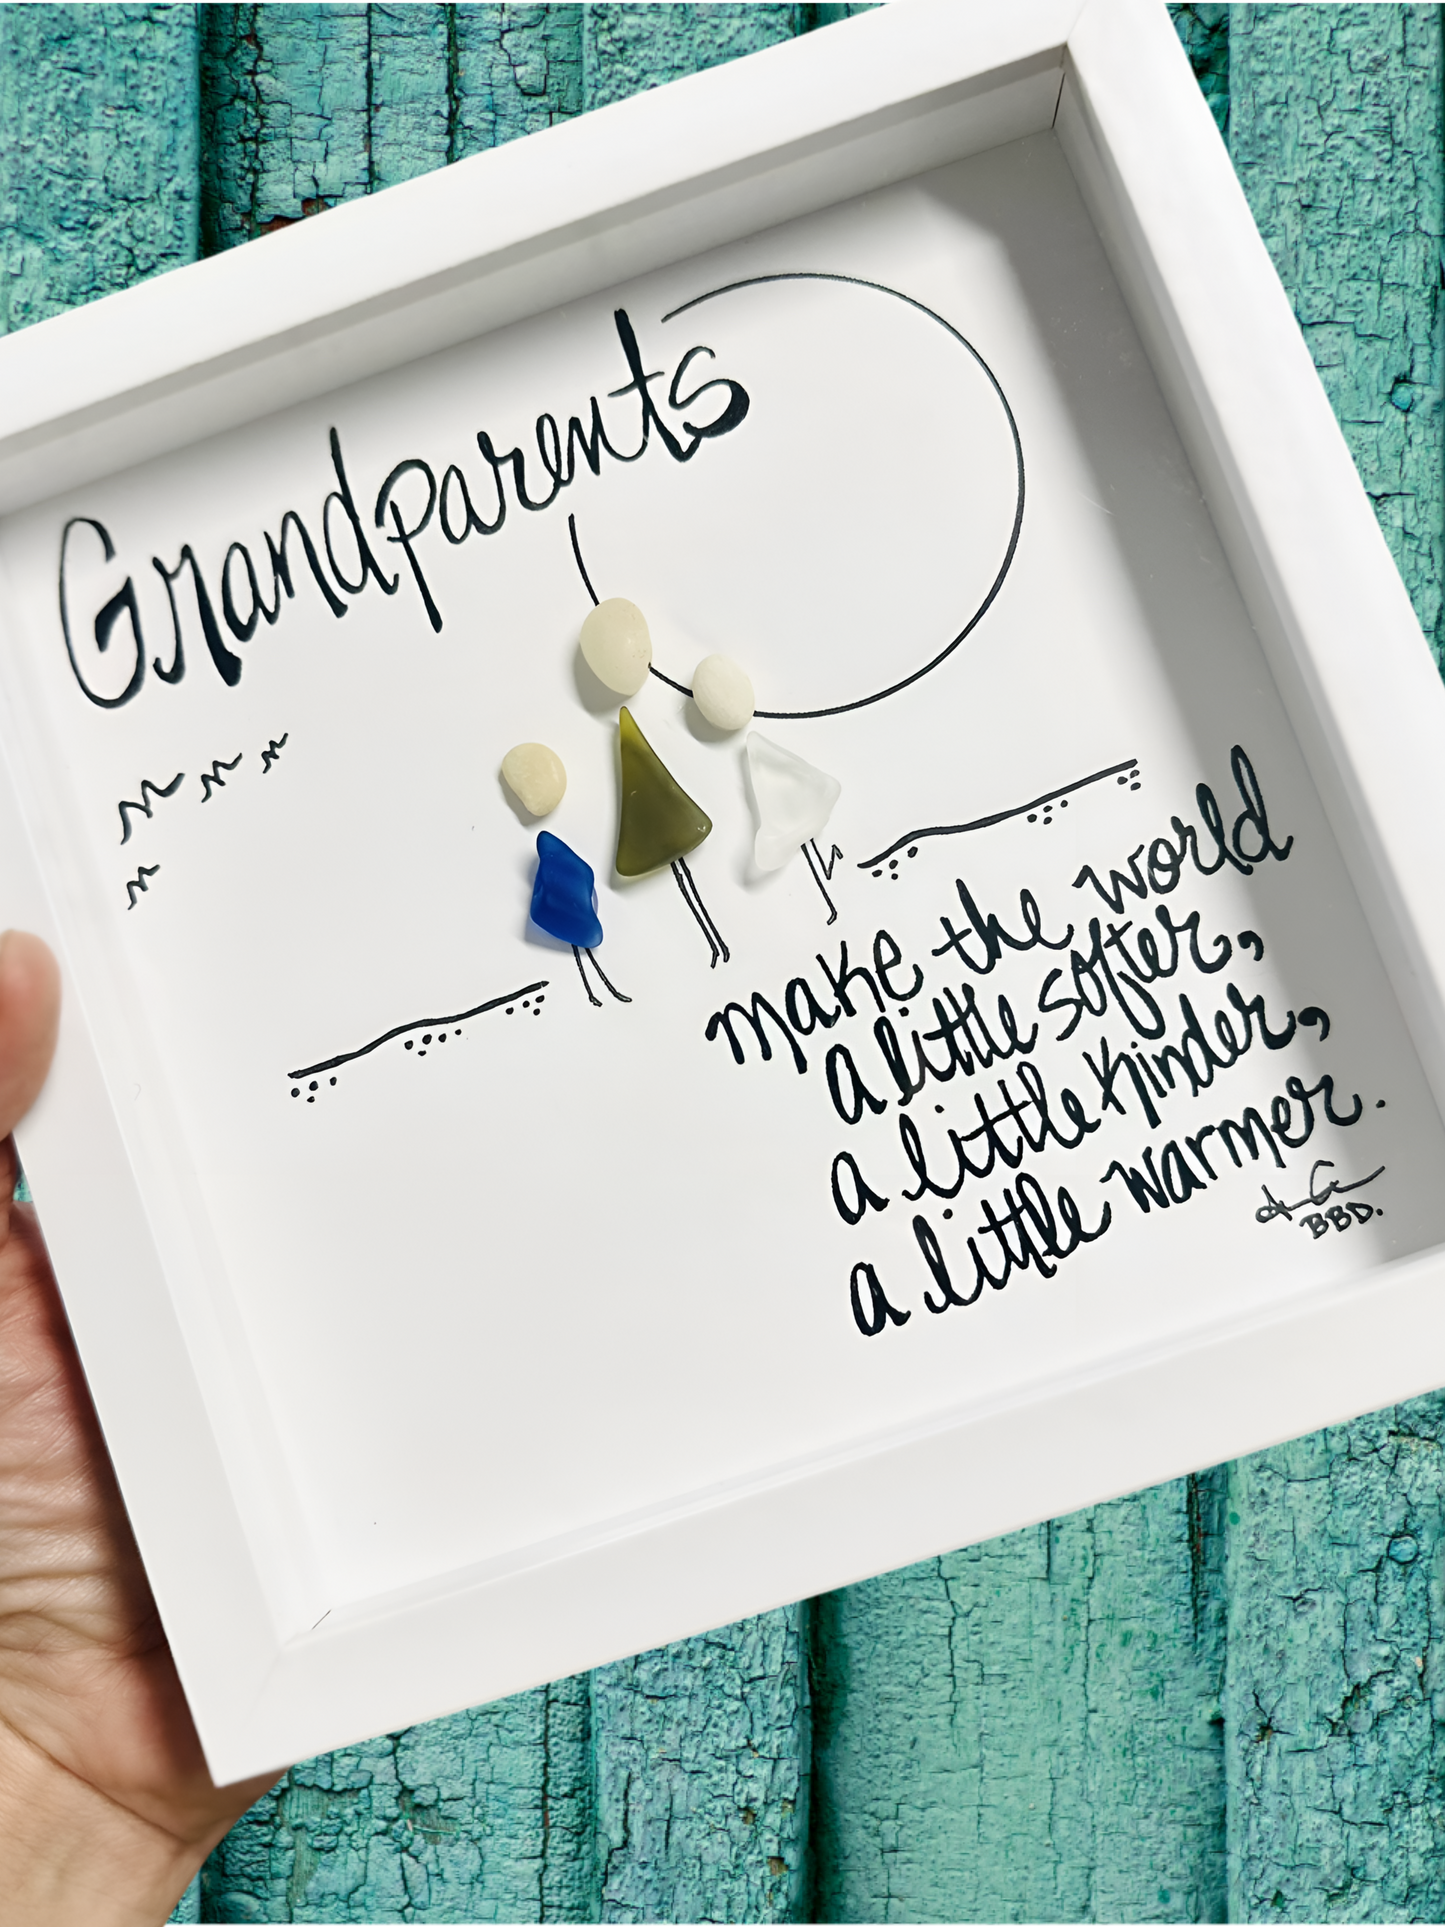 Grandparents
make the world
a little softer,
a little kinder,
a little warmer.
BBD.